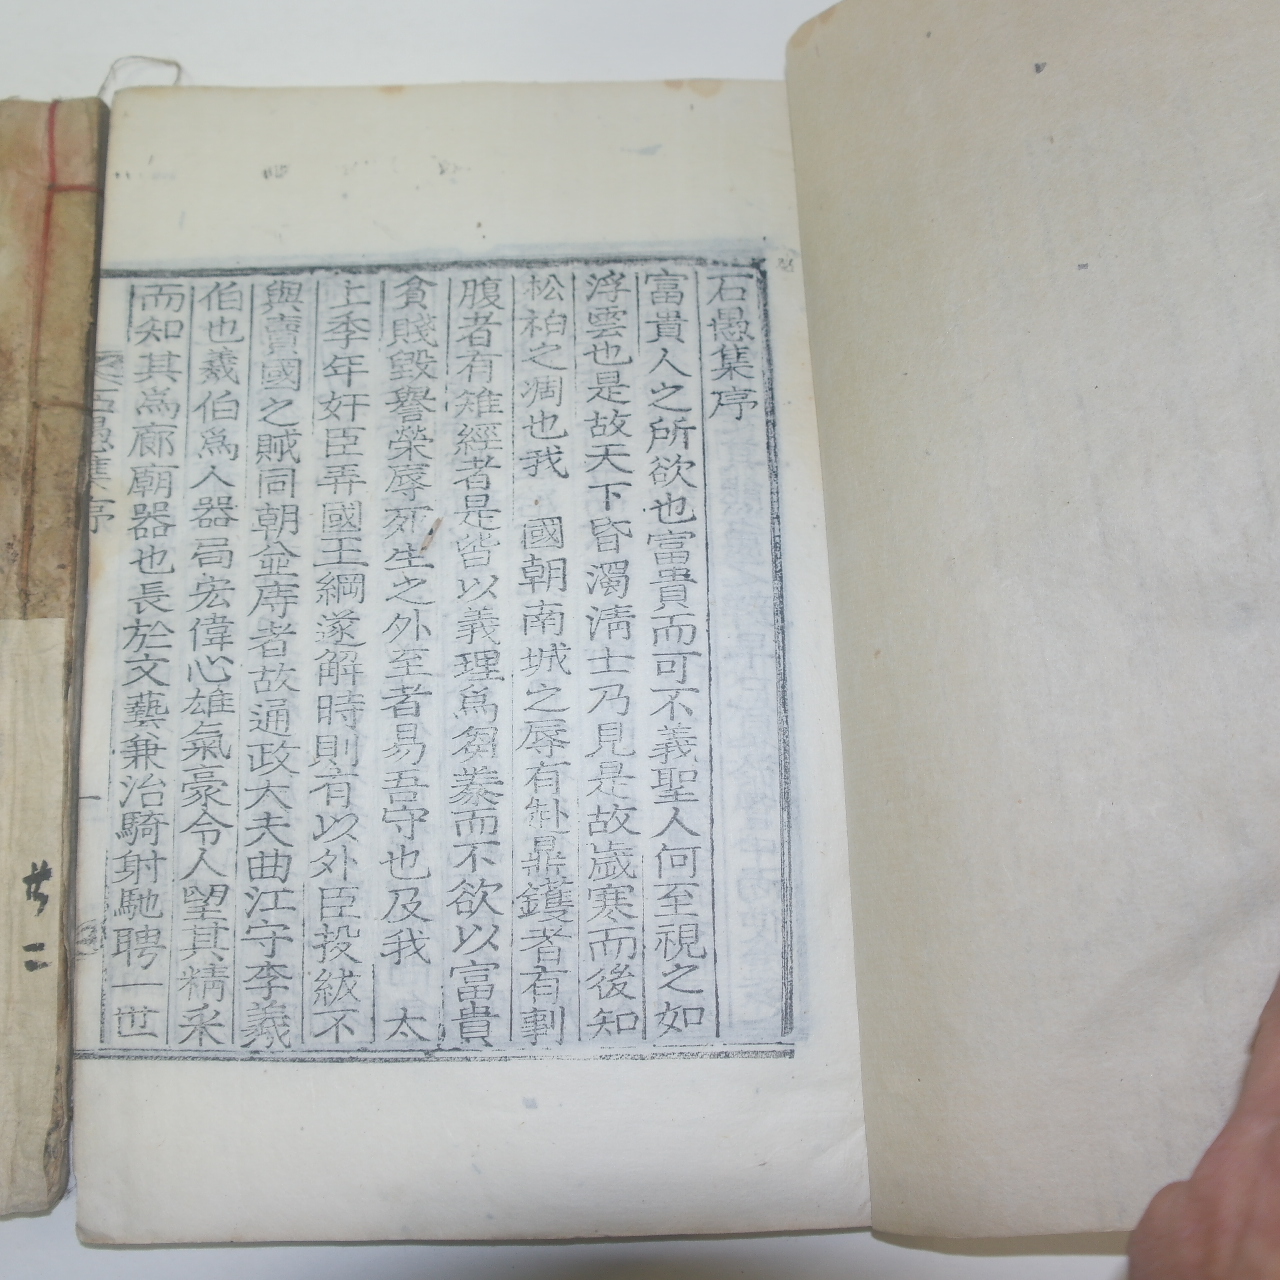 石愚集序
富貴人之所欲也富貴而可不義聖人何至視之如
浮雲也是故天下昏濁淸士乃見是故歲寒而後知
松柏之凋也我 國朝南城之辱有赴鼎鑊者有剚
腹者有雉經者是皆以義理爲芻豢而不欲以富貴
貧賤毀譽榮辱死生之外至者易吾守也及我 太
上季年奸臣弄國王綱遂解時則有以外臣投紱不
與賣國之賊同朝並庤者故通政大夫曲江守李羲
伯也羲伯爲人器局宏偉心雄氣豪令人望其精采
而知其爲廊廟器也長於文藝兼治騎射馳聘一世
石愚集序
一
共二